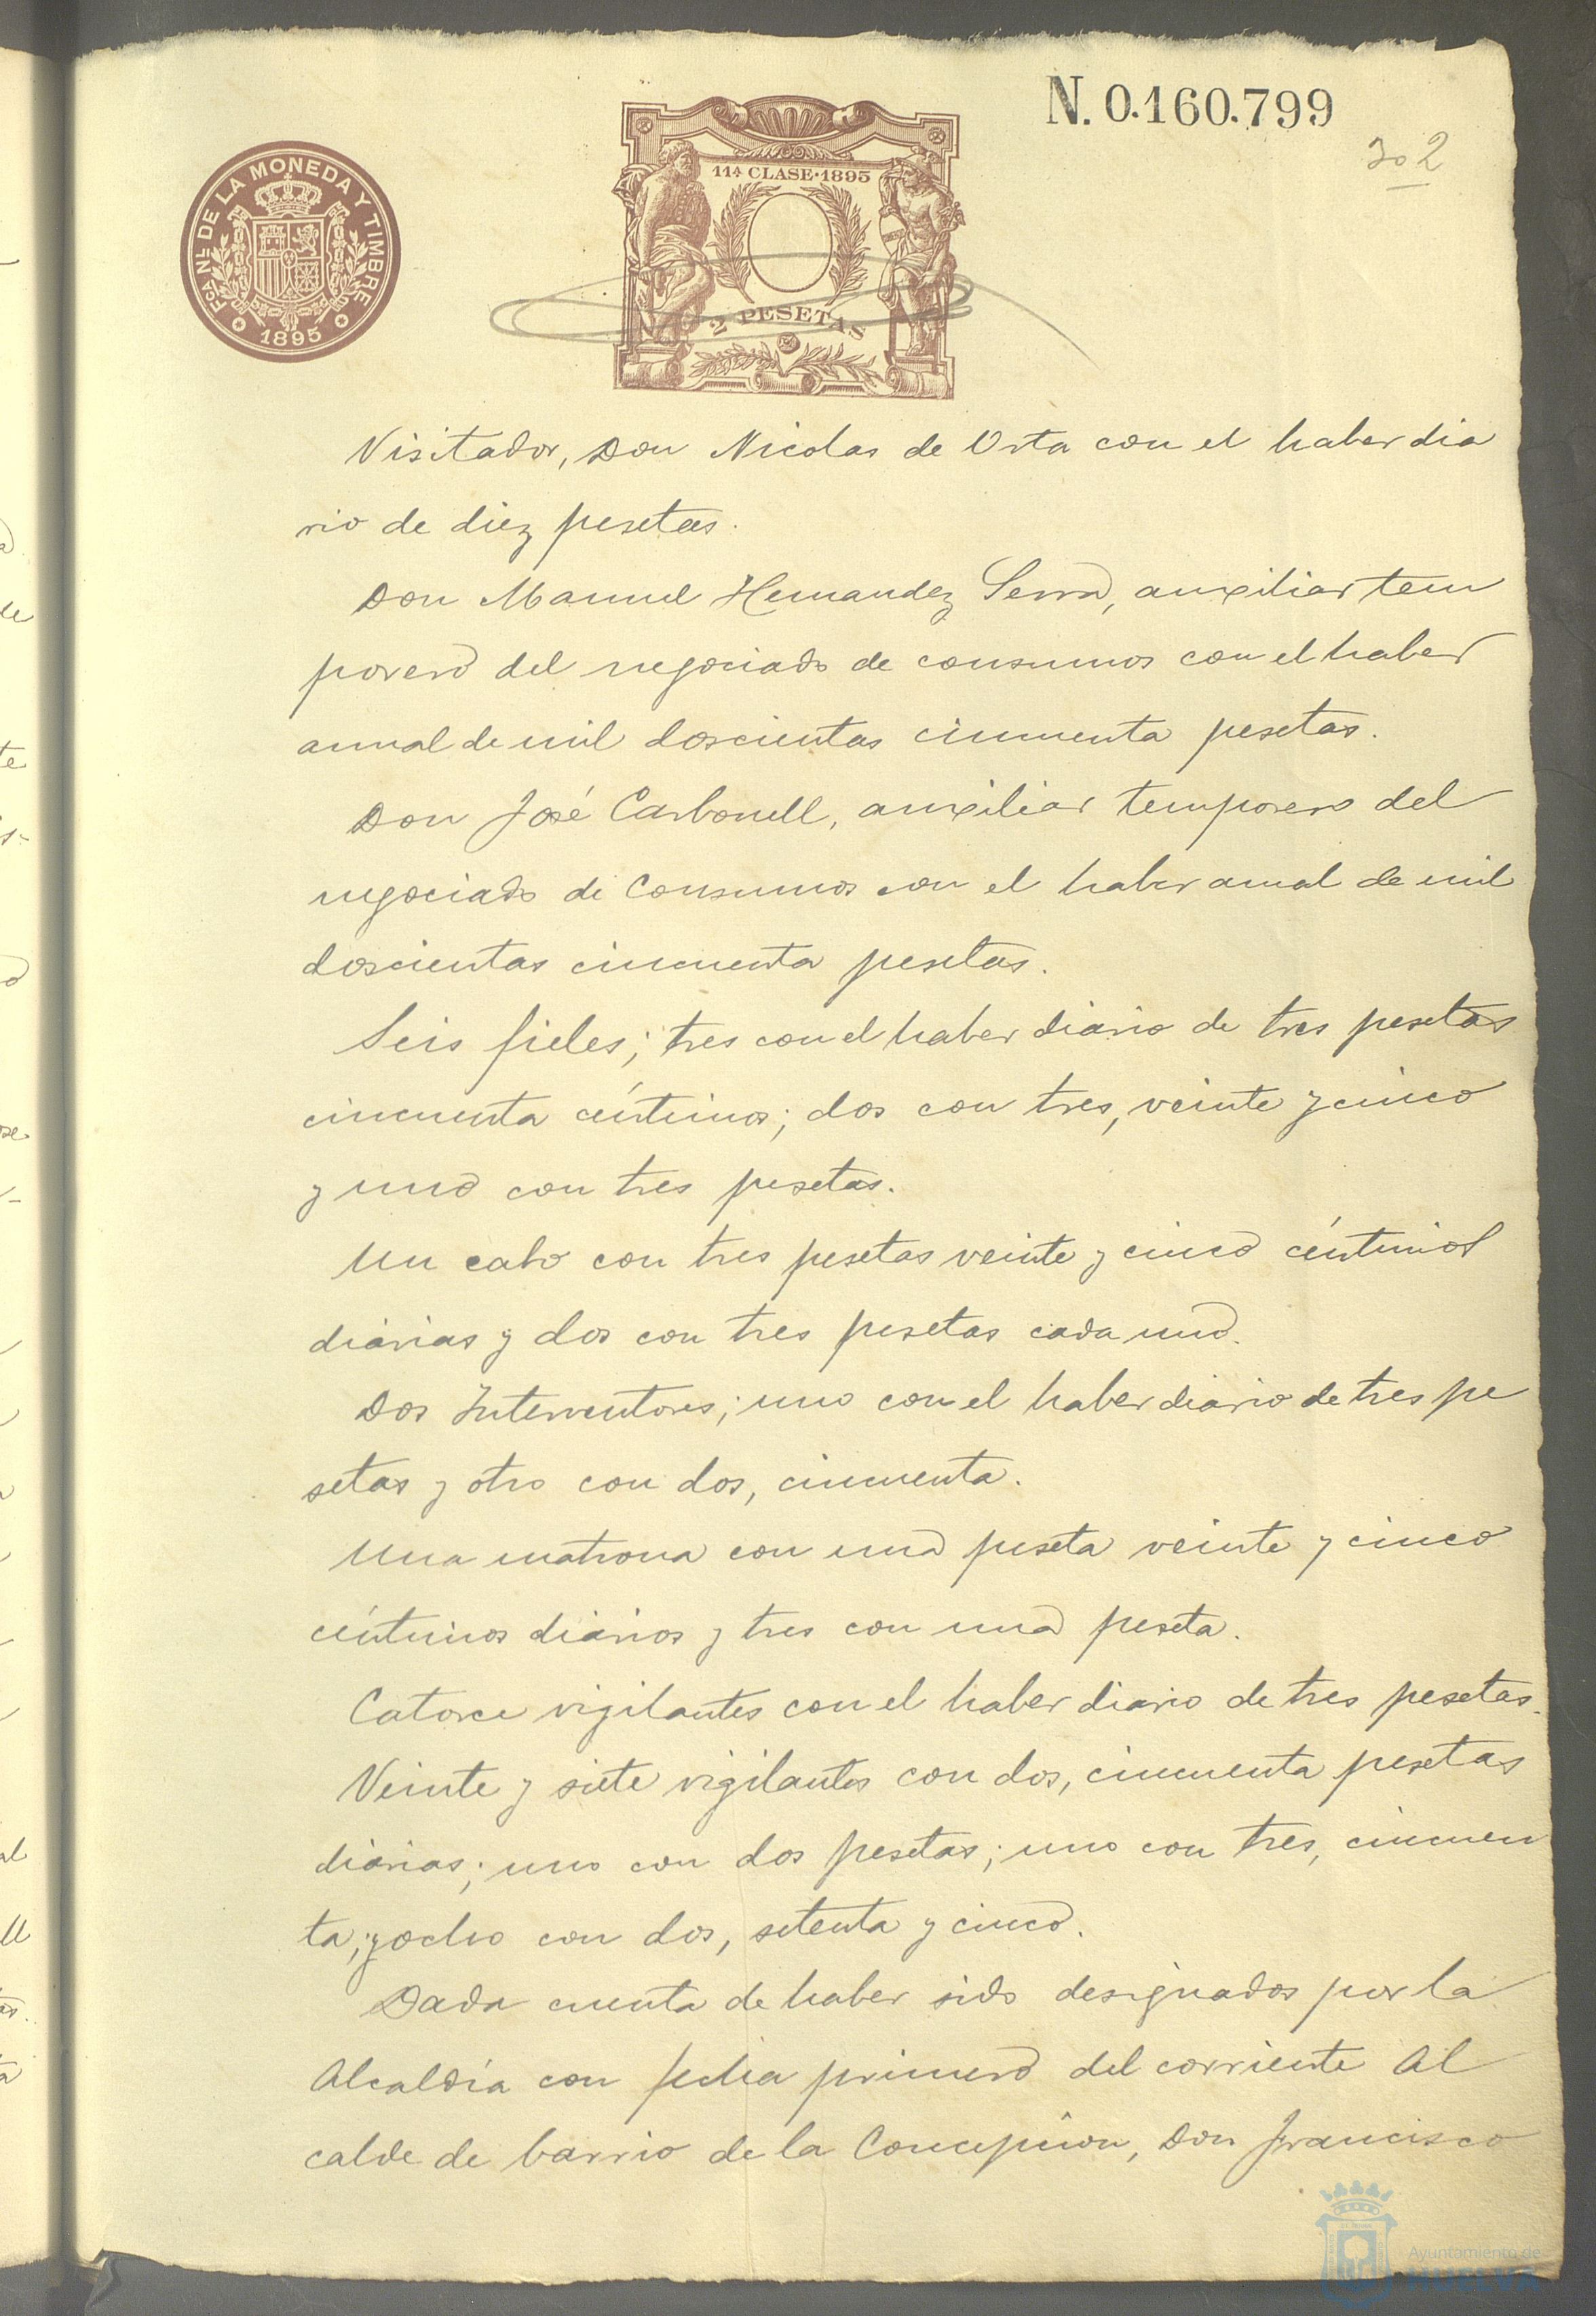 N. 0.160.799
302
FCA NL DE LA MONEDA Y TIMBRE
1895
11ª CLASE·1895
2 PESETAS
Visitador, Don Nicolas de Orta con el haber dia
rio de diez pesetas.
Don Manuel Hernandez Serra, auxiliar tem
porero del negociado de consumos con el haber
anual de mil doscientas cincuenta pesetas.
Don José Carbonell, auxiliar temporero del
negociado de Consumos con el haber anual de mil
doscientas cincuenta pesetas.
Seis fieles; tres con el haber diario de tres pesetas
cincuenta céntimos; dos con tres, veinte y cinco
y uno con tres pesetas.
Un cabo con tres pesetas veinte y cinco céntimos
diarias y dos con tres pesetas cada uno.
Dos Interventores; uno con el haber diario de tres pe
setas y otro con dos, cincuenta.
Una matrona con una peseta veinte y cinco
céntimos diarios y tres con una peseta.
Catorce vigilantes con el haber diario de tres pesetas.
Veinte y siete vigilantes con dos, cincuenta pesetas
diarias; uno con dos pesetas; uno con tres, cincuen
ta; y ocho con dos, setenta y cinco.
Dada cuenta de haber sido designados por la
Alcaldía con fecha primero del corriente Al
calde de barrio de la Concepción, Don Francisco
Ayuntamiento de
HUELVA